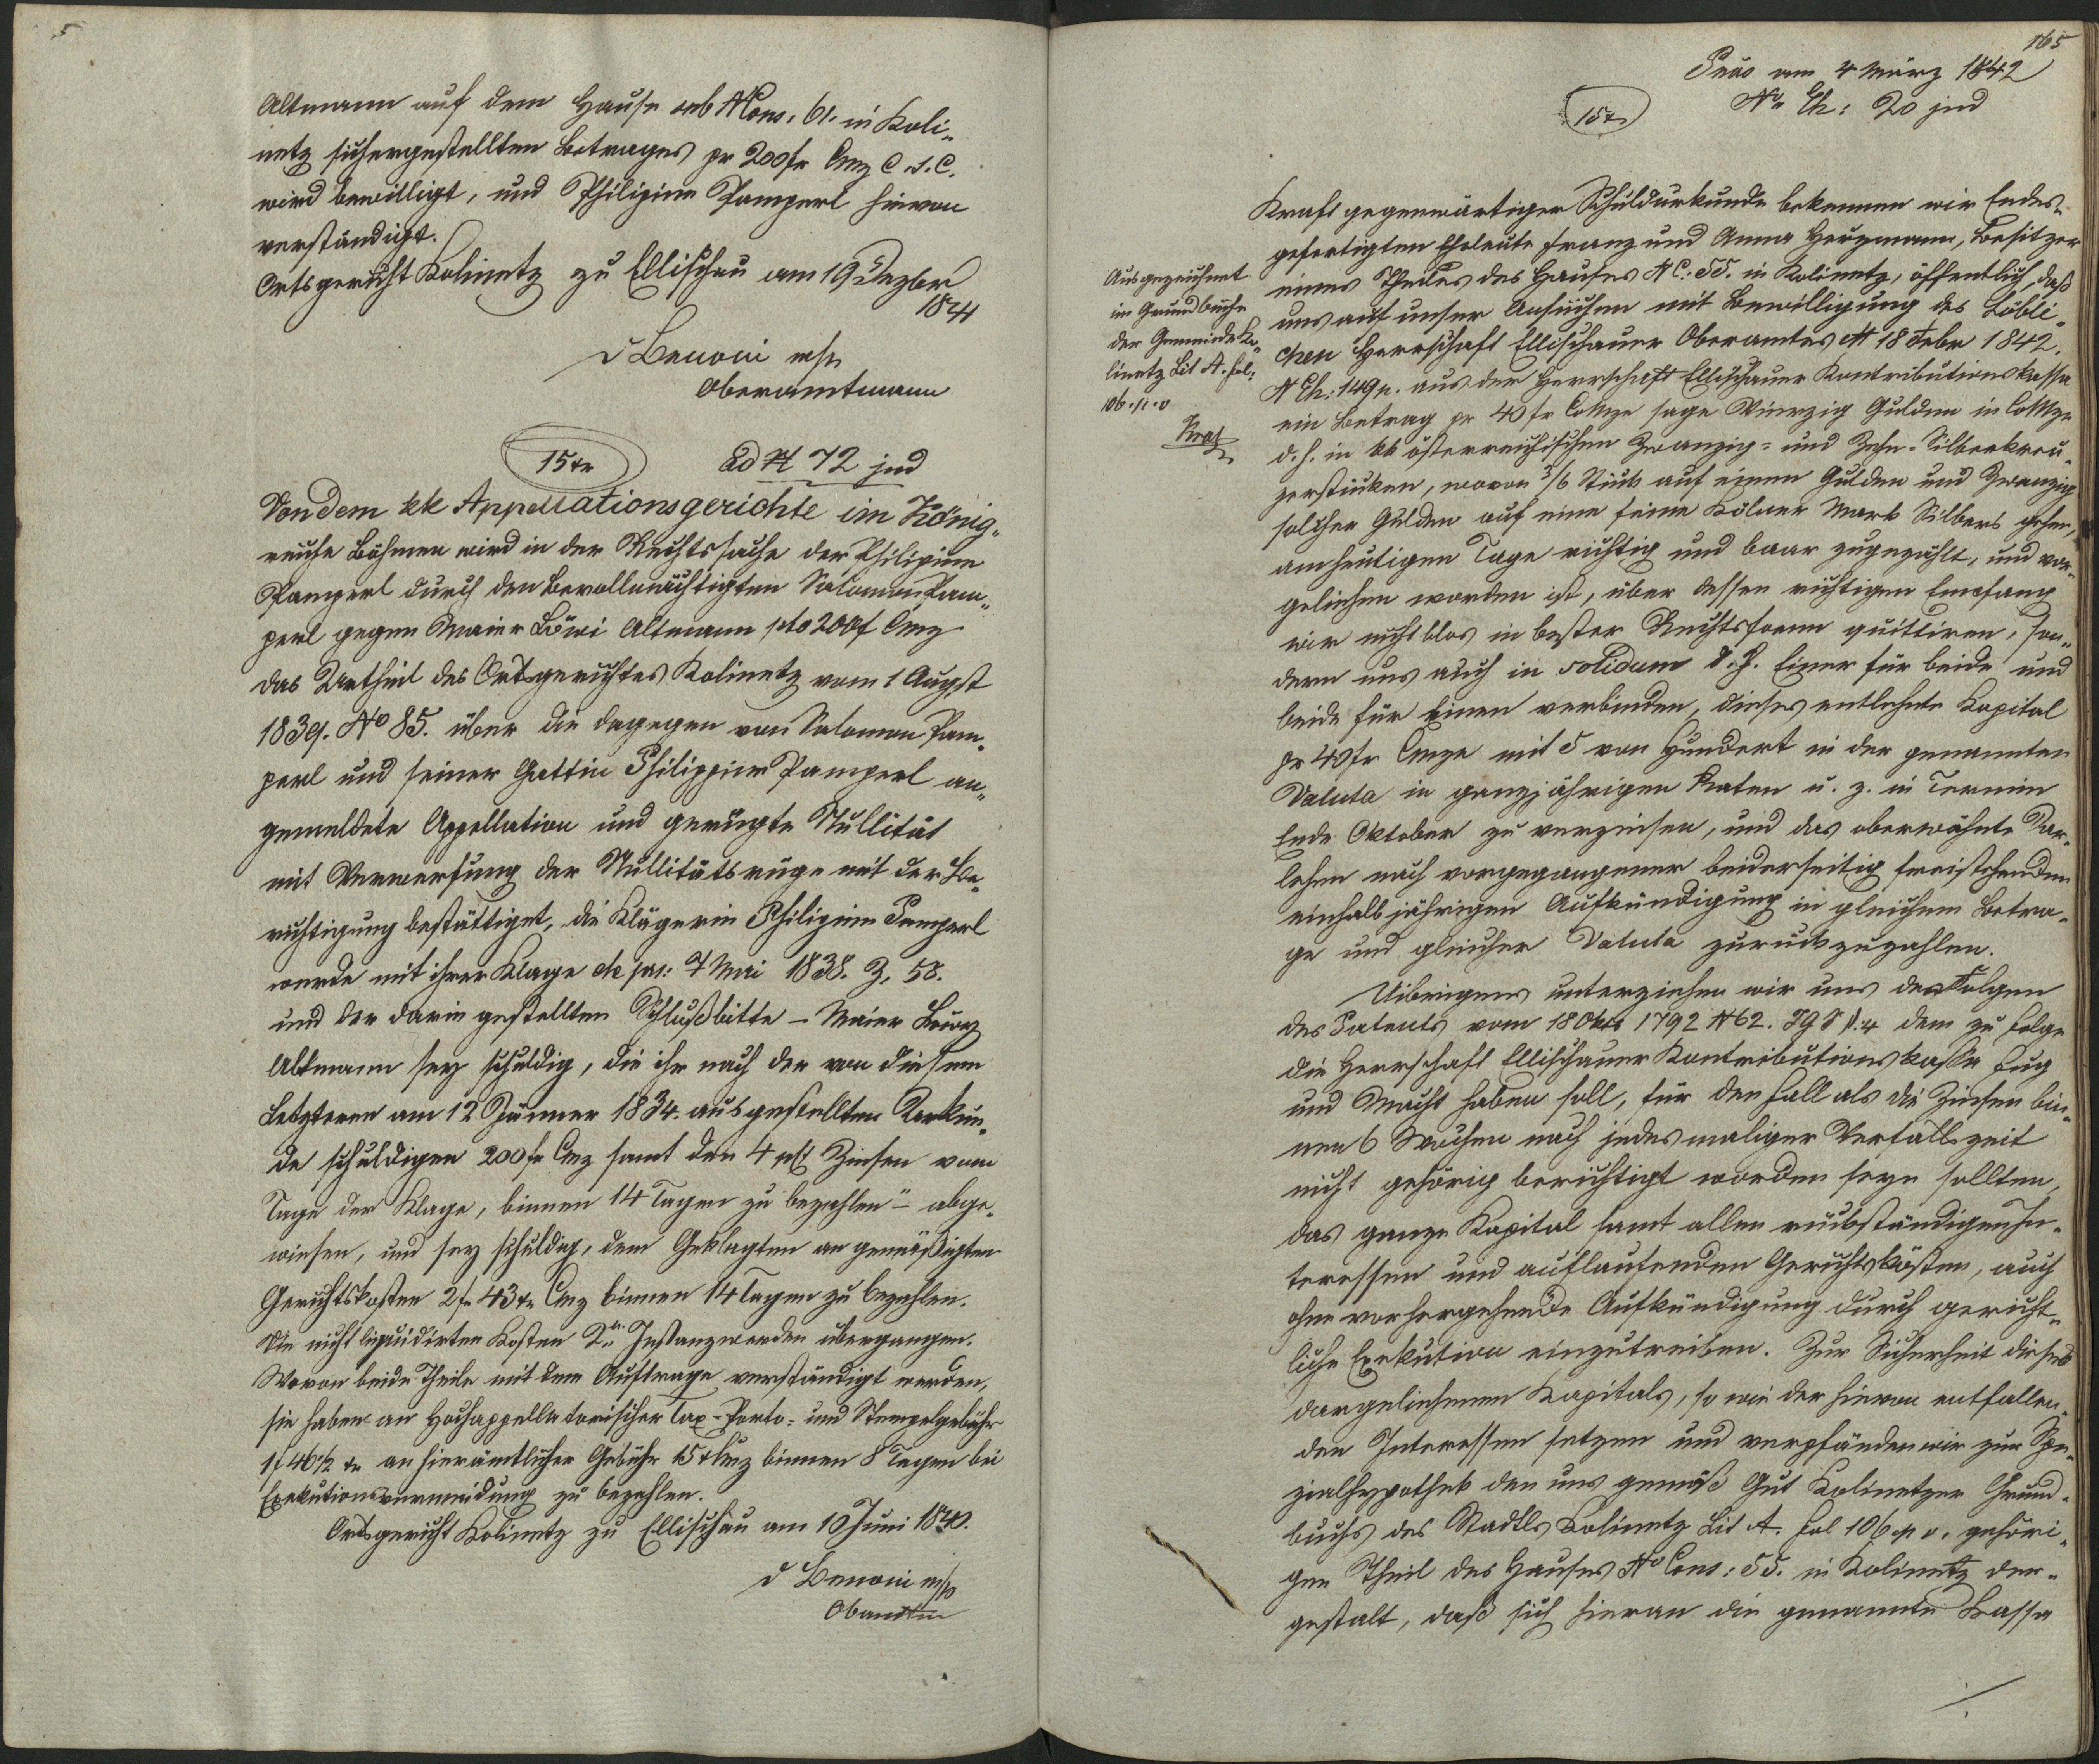 Altmann auf dem Hause sub NCons. 61. in Koli„
netz sichergestellten Betrages pr 200 fr Cmz C. s. C.
wird bewilligt, und Philipine Pamperl hievon
verständigt.
Ortsgericht Kolinetz zu Ellischau am 19 Dezber
1841
d Benoni m/p
Oberamtmann
15 xr
ad N 72 jud
Von dem kk Appellationsgerichte im König„
reiche Böhmen wird in der Rechtssache der Philipine
Pamperl durch den Bevollmächtigten Salomon Pam„
perl gegen Maier Löwi Altmann pto 200 f Cmz
das Urtheil des Ortsgerichtes Kolinetz vom 1 Augst
1839. No 85. über die dagegen von Salomon Pam„
perl und seiner Gattin Philippine Pamperl an„
gemeldete Appellation und gerügte Nullität
mit Verwerfung der Nullitätsrüge mit der Be„
richtigung bestättiget, die Klägerin Philipine Pamperl
werde mit ihrer Klage de prs: 7 Mai 1838. Z. 58.
und der darin gestellten Schlußbitte – Maier Löwy
Altmann sey schuldig, die ihr nach der von diesem
Letzteren am 12 Jänner 1834. ausgestellten Urkun„
de schuldigen 200 fr Cmz samt den 4 pCt Zinsen vom
Tage der Klage, binnen 14 Tagen zu bezahlen" – abge„
wiesen, und sey schuldig, dem Geklagten an gemäßigten
Gerichtskosten 2 fr 43 xr Cmz binnen 14 Tagen zu bezahlen.
Die nicht liquidirten Kosten 2ter Instanz werden übergangen.
Wovon beide Theile mit dem Auftrage verständigt werden,
sie haben an Hochappellatorischer Tax- Porto- und Stempelgebühr
1 f 46 1/2 xr an hierämtlicher Gebühr 15 x Cmz binnen 8 Tagen bei
Exekutionsvermeidung zu bezahlen.
Ortsgericht Kolinetz zu Ellischau am 10 Juni 1840.
d Benoni m/p
Obamtm
165
Präs am 4 März 1842
Nr Eh: 20 jud
15 x
Ausgezeichnet
im Grundbuche
der Gemeinde Ko„
linetz Lit A. fol:
106. p. v
Kraft gegenwärtiger Schuldurkunde bekennen wir Endes„
gefertigten Eheleute Franz und Anna Herzmann, Besitzer
eines Theiles des Hauses N C: 55. in Kolinetz, öffentlich, daß
uns auf unser Ansuchen mit Bewilligung des Löbli„
chen Herrschaft Ellischauer Oberamtes dto 18 Febr 1842.
N Eh: 149 p. aus der Herrschaft Ellischauer Kontributionskassa
ein Betrag pr 40 fr CoMze sage Vierzig Gulden in CoMze
d. h. in kk österreichischen Zwanzig- und Zehn-Silberkreu„
zerstücken, wovon 3/6 Stück auf einen Gulden und Zwanzig
solcher Gulden auf eine feine Kölner Mark Silbers gehen,
am heutigen Tage richtig und baar zugezählt, und vor„
geliehen worden ist, über dessen richtigen Empfang
wir nicht blos in bester Rechtsform quittiren, son„
dern uns auch in solidum d. h. Einer für beide und
beide für Einen verbinden, dieses entlehnte Kapital
pr 40 fr Cmze mit 5 von Hundert in der genannten
Valuta in ganzjährigen Raten u. z. in Termin
Ende Oktober zu verzinsen, und das oberwähnte Dar„
lehen nach vorgegangener beiderseitig freistehenden
einhalbjährigen Aufkündigung in gleichem Betra„
ge und gleicher Valuta zurückzuzahlen.
Uibrigens unterziehen wir uns den Folgen
des Patents vom 18 Oktr 1792 N 62. JGS §. 4 dem zu folge
die Herrschaft Ellischauer Kontributionskasse Fug
und Macht haben soll, für den Fall als die Zinsen bin„
nen 6 Wochen nach jedesmaliger Verfallszeit
nicht gehörig berichtigt worden seyn sollten,
das ganze Kapital samt allen rückständigen In„
teressen und auflaufenden Gerichtskösten, auch
ohne vorhergehende Aufkündigung durch gericht„
liche Exekution einzutreiben. Zur Sicherheit dieses
dargeliehenen Kapitals, so wie der hievon entfallen„
den Interessen setzen und verpfänden wir zur Spe„
zialhypothek den uns gemäß Gut Kolinetzer Grund„
buchs des Stadtls Kolinetz Lit A. fol 106 p v. gehöri„
gen Theil des Hauses No Cons: 55. in Kolinetz der„
gestalt, daß sich hieran die genannte Kassa